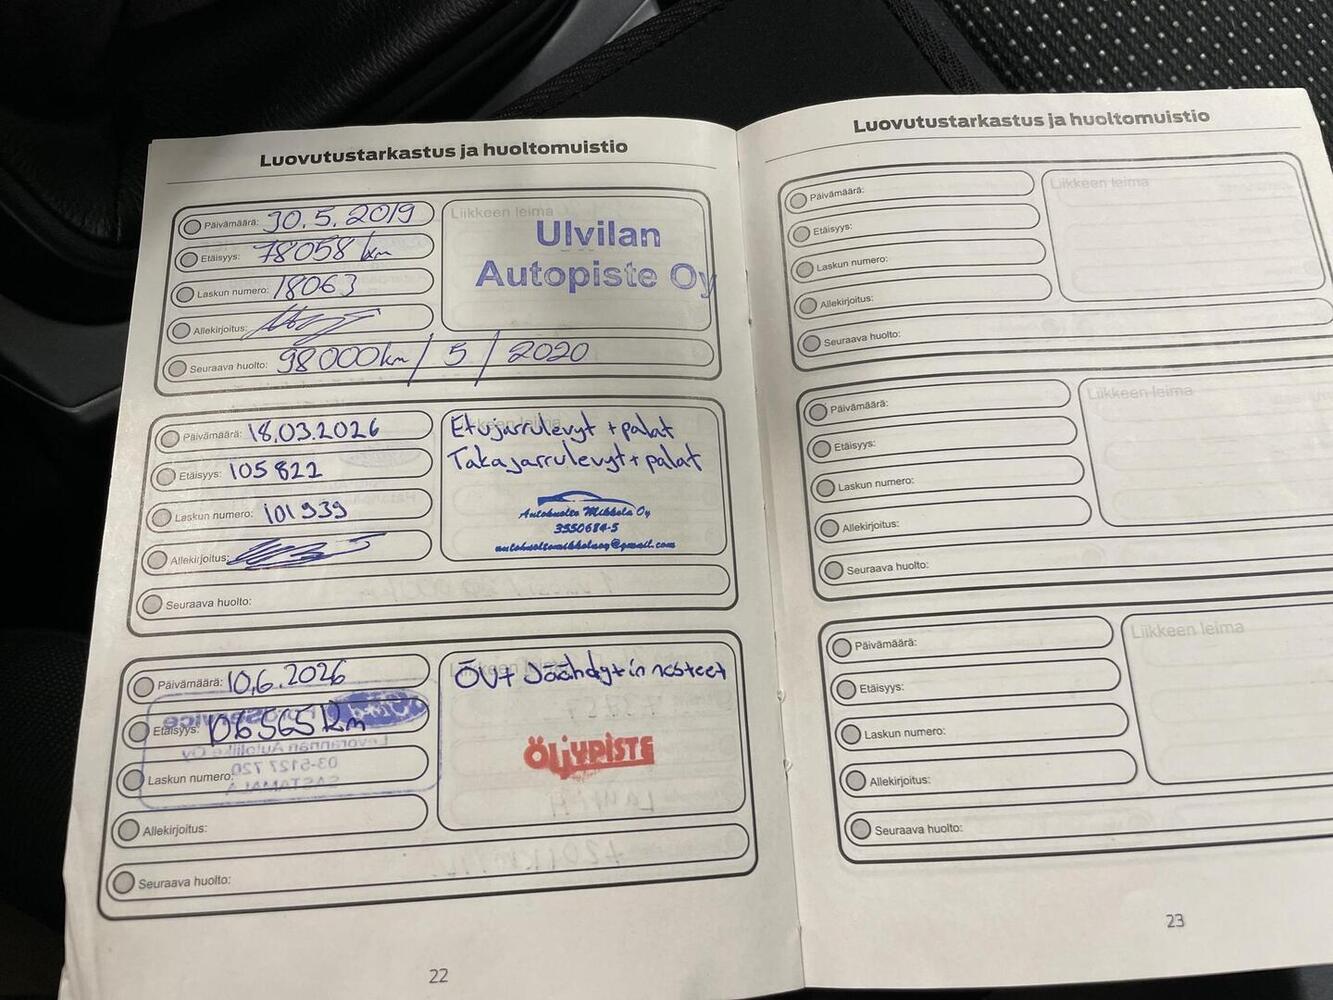 Luovutustarkastus ja huoltomuistio
Päivämäärä: 30.5.2019
Etäisyys: 78058 km
Laskun numero: 18063
Allekirjoitus:
Seuraava huolto: 98000km / 5 / 2020
Liikkeen leima
Ulvilan
Autopiste Oy
Päivämäärä: 18.03.2026
Etäisyys: 105822
Laskun numero: 101939
Allekirjoitus:
Seuraava huolto:
Etujarrulevyt + palat
Takajarrulevyt + palat
Autohuolto Mikkola Oy
3550684-5
autohuoltomikkolaoy@gmail.com
Päivämäärä: 10.6.2026
Etäisyys: 106565 km
Laskun numero:
Allekirjoitus:
Seuraava huolto:
Liikkeen leima
ÖV+ Jäähdytin nesteet
ÖLJYPISTE
Ford
Service
Levorannan Autoliike Oy
03-5127 720
SASTAMALA
22
Luovutustarkastus ja huoltomuistio
Päivämäärä:
Etäisyys:
Laskun numero:
Allekirjoitus:
Seuraava huolto:
Liikkeen leima
Päivämäärä:
Etäisyys:
Laskun numero:
Allekirjoitus:
Seuraava huolto:
Liikkeen leima
Päivämäärä:
Etäisyys:
Laskun numero:
Allekirjoitus:
Seuraava huolto:
Liikkeen leima
23